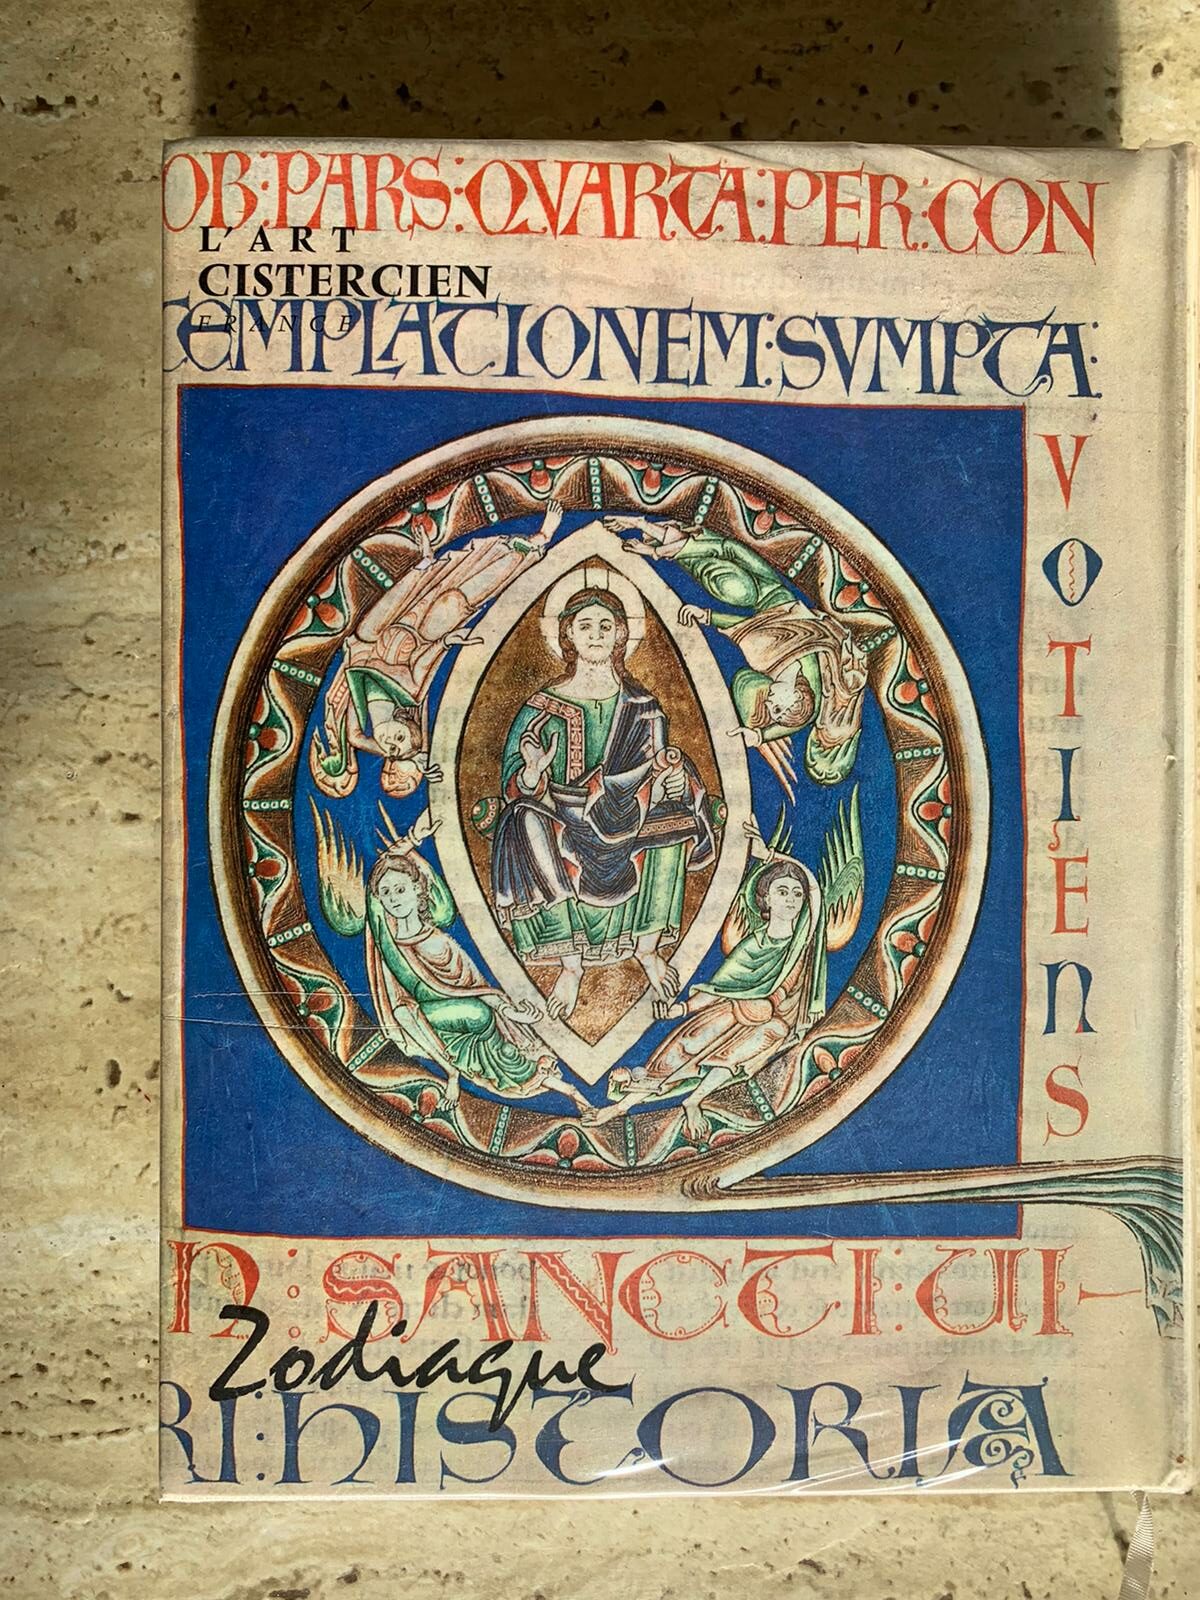 OB:PARS:QVARTA:PER:CON
L'ART
CISTERCIEN
FRANCE
TEMPLATIONEM:SVMPTA:
VOTIENS
IN:SANCTI:VI
RI:HISTORIA
Zodiaque